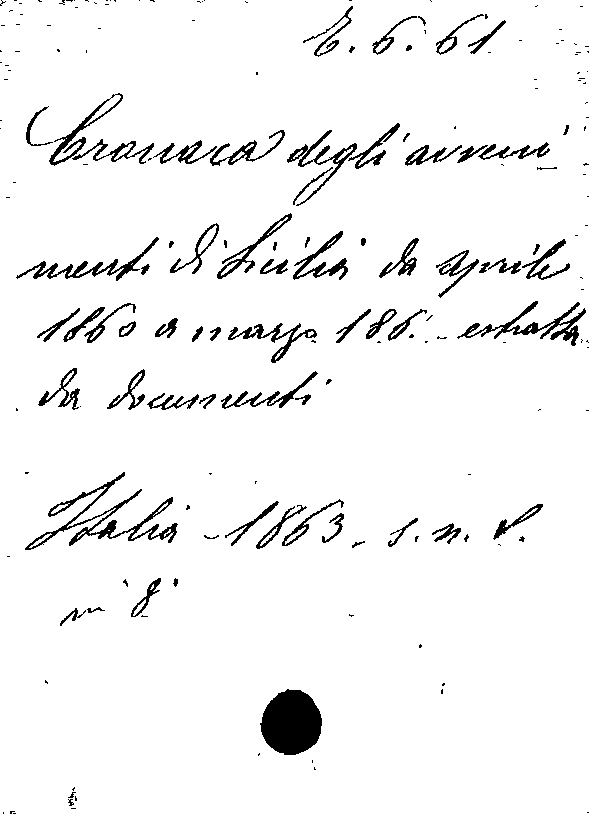 E. 6. 61
Cronaca degli avveni
menti di Sicilia da aprile
1860 a marzo 186. estratta
da documenti
Italia - 1863 - s. n. t.
in 8°